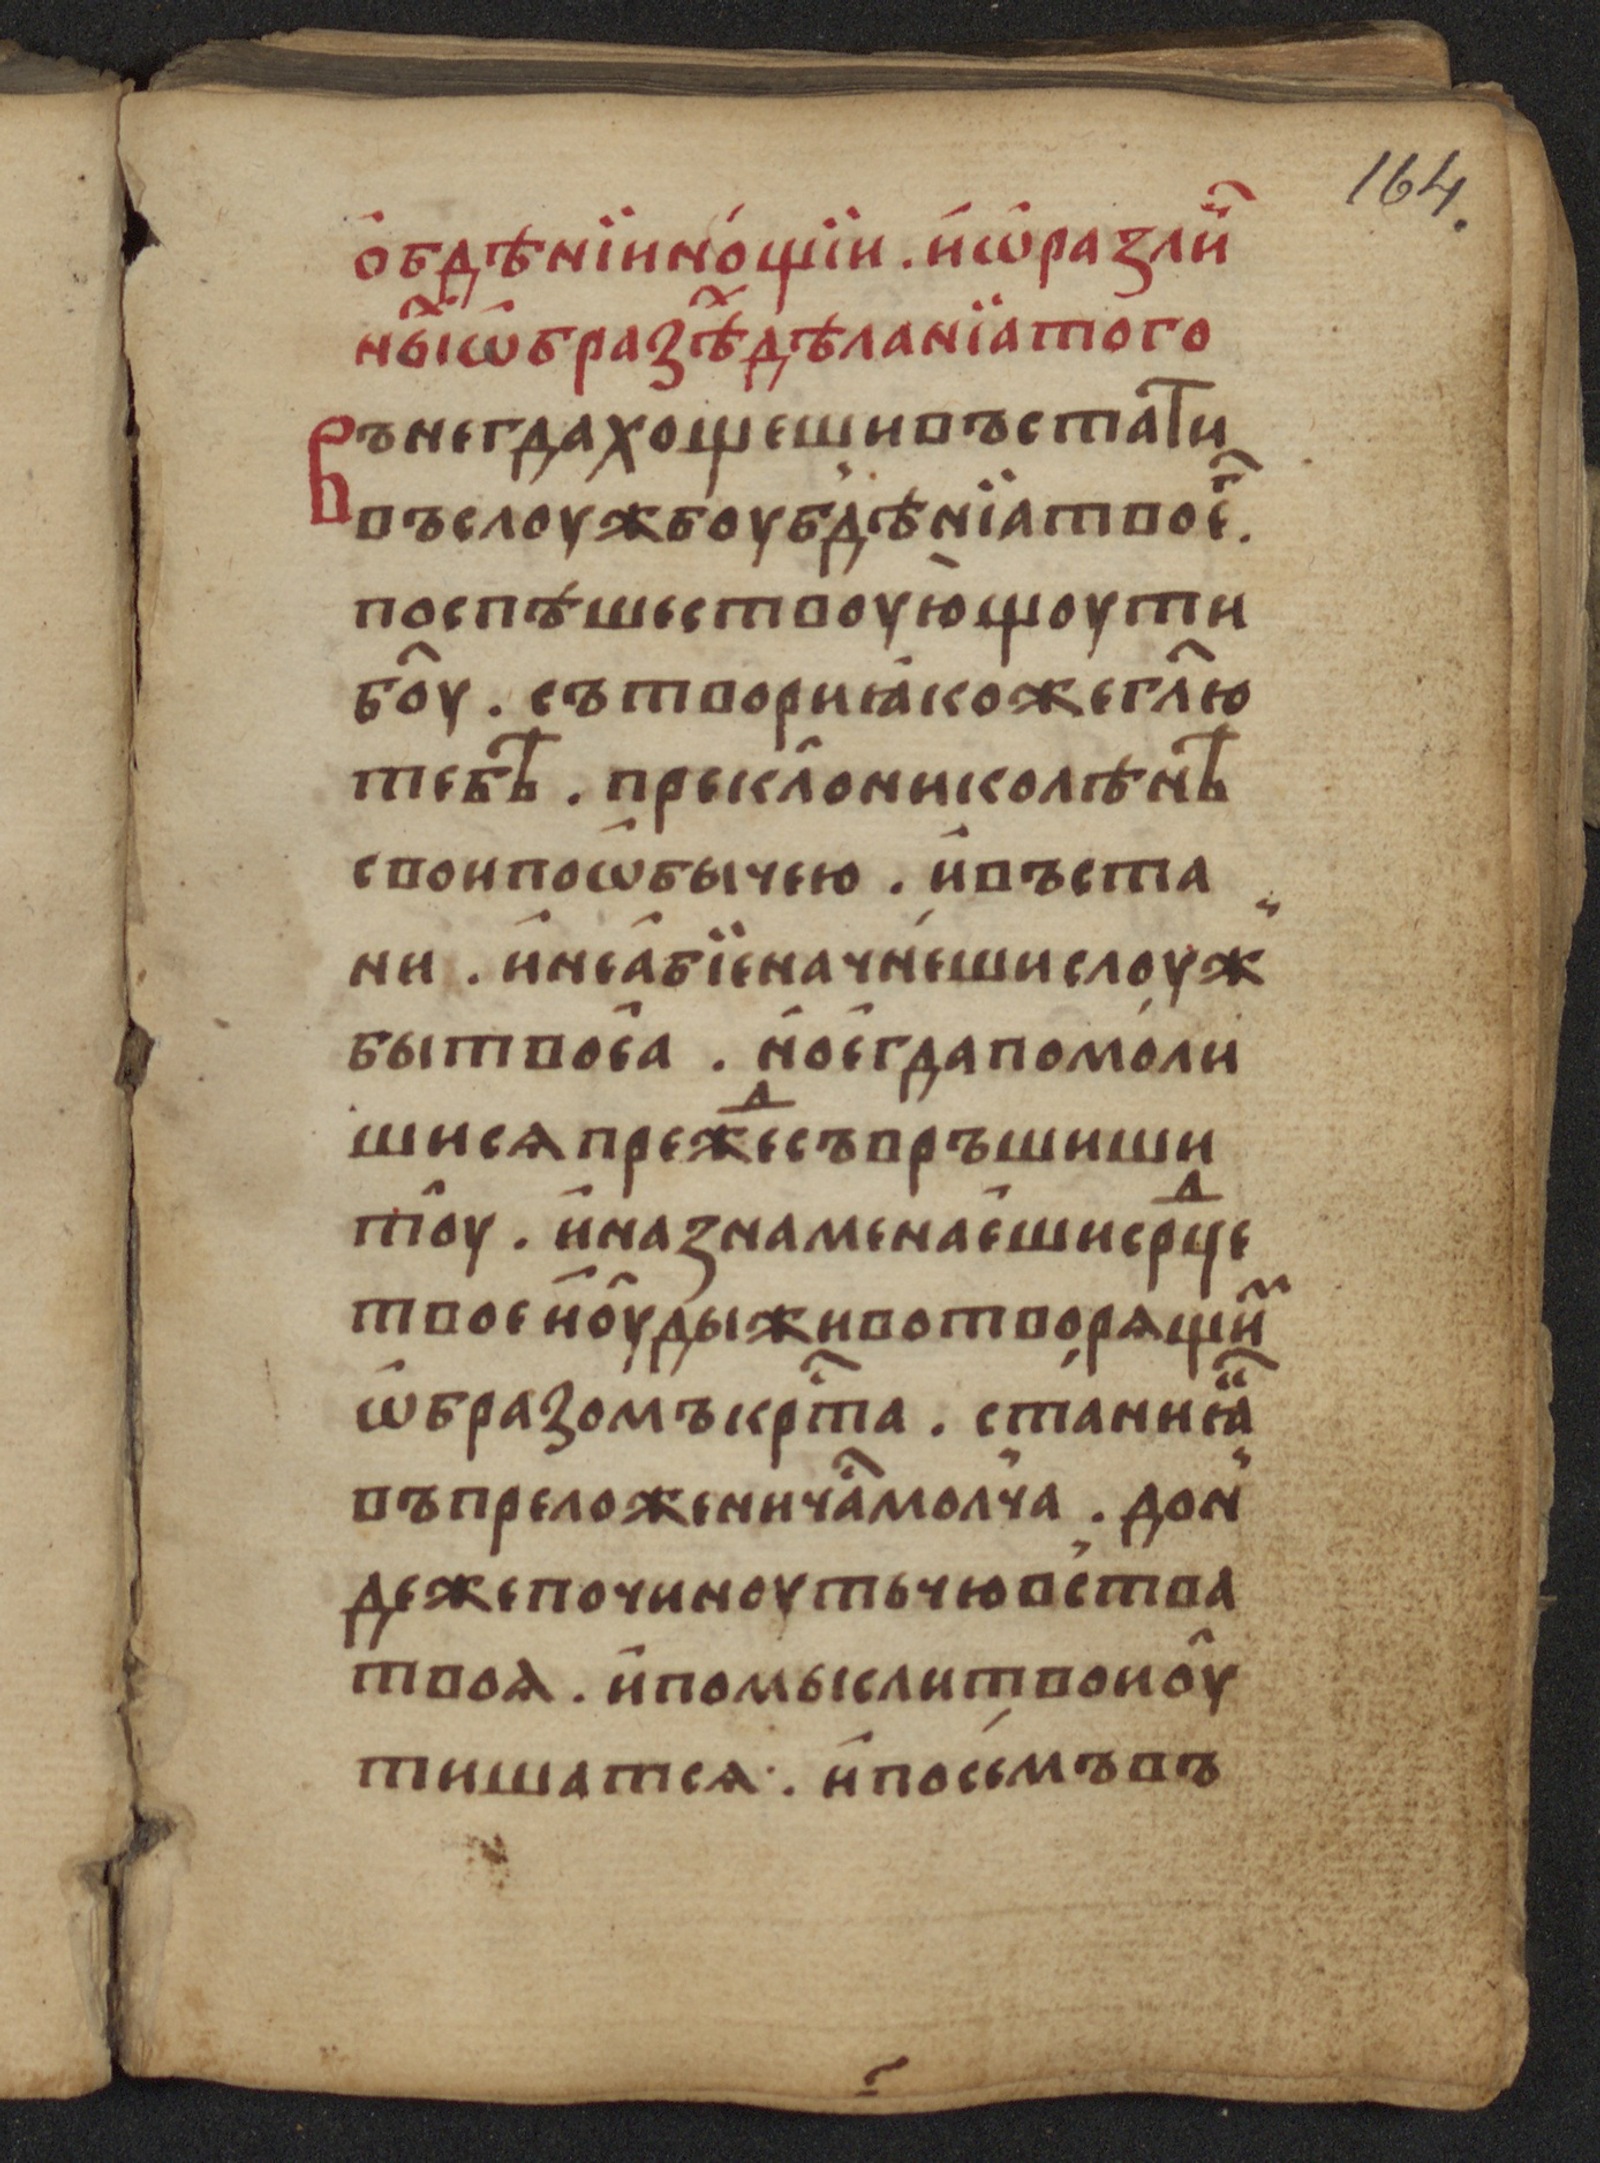 164.
о҆бдѣнїи но́щїи . и҆ ѡ҆ разлⷱ҇и
ны́ⷯ ѡ҆бразѣⷯ дѣланїа того
Вънегда хощеши въстати
въ слоужбоу бдѣнїа твоеⷢ҇ .
поспѣшествоую҆щоу ти
бо҃у . сътвори ꙗ҆коже гл҃ю
тебѣ . преклони колѣнѣ
свои по ѡ҆бычею . и҆ въста
ни . и҆ не а҆бїе начне́ши слоуж
бы твоеа҆ . но҆ е҆гда помо́ли
шисѧ преⷤ҇жде съвръшиши
то҃у . и҆ назнаменае҆ши срⷣце
твое и҆ о҆уды животворѧщиⷨ
ѡ҆бразомъ крⷭ҇та . стани ꙗ҆ⷦ҇
въ преложени чаⷭ҇ молча . дон
деже починоуть чювства
твоѧ . и҆ помысли твои о҆у
тишатсѧ . и҆ по се́мъ въ